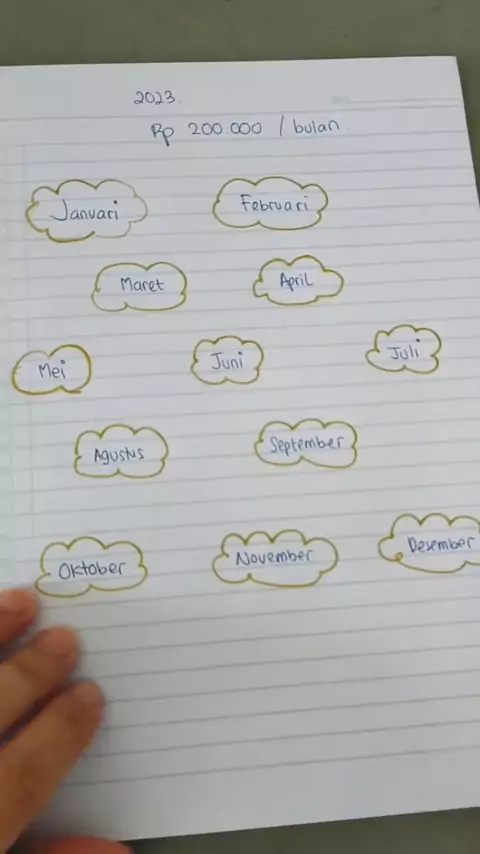 2023.
Rp 200.000 / bulan.
Januari Februari
Maret April
Mei Juni Juli
Agustus September
Oktober November Desember